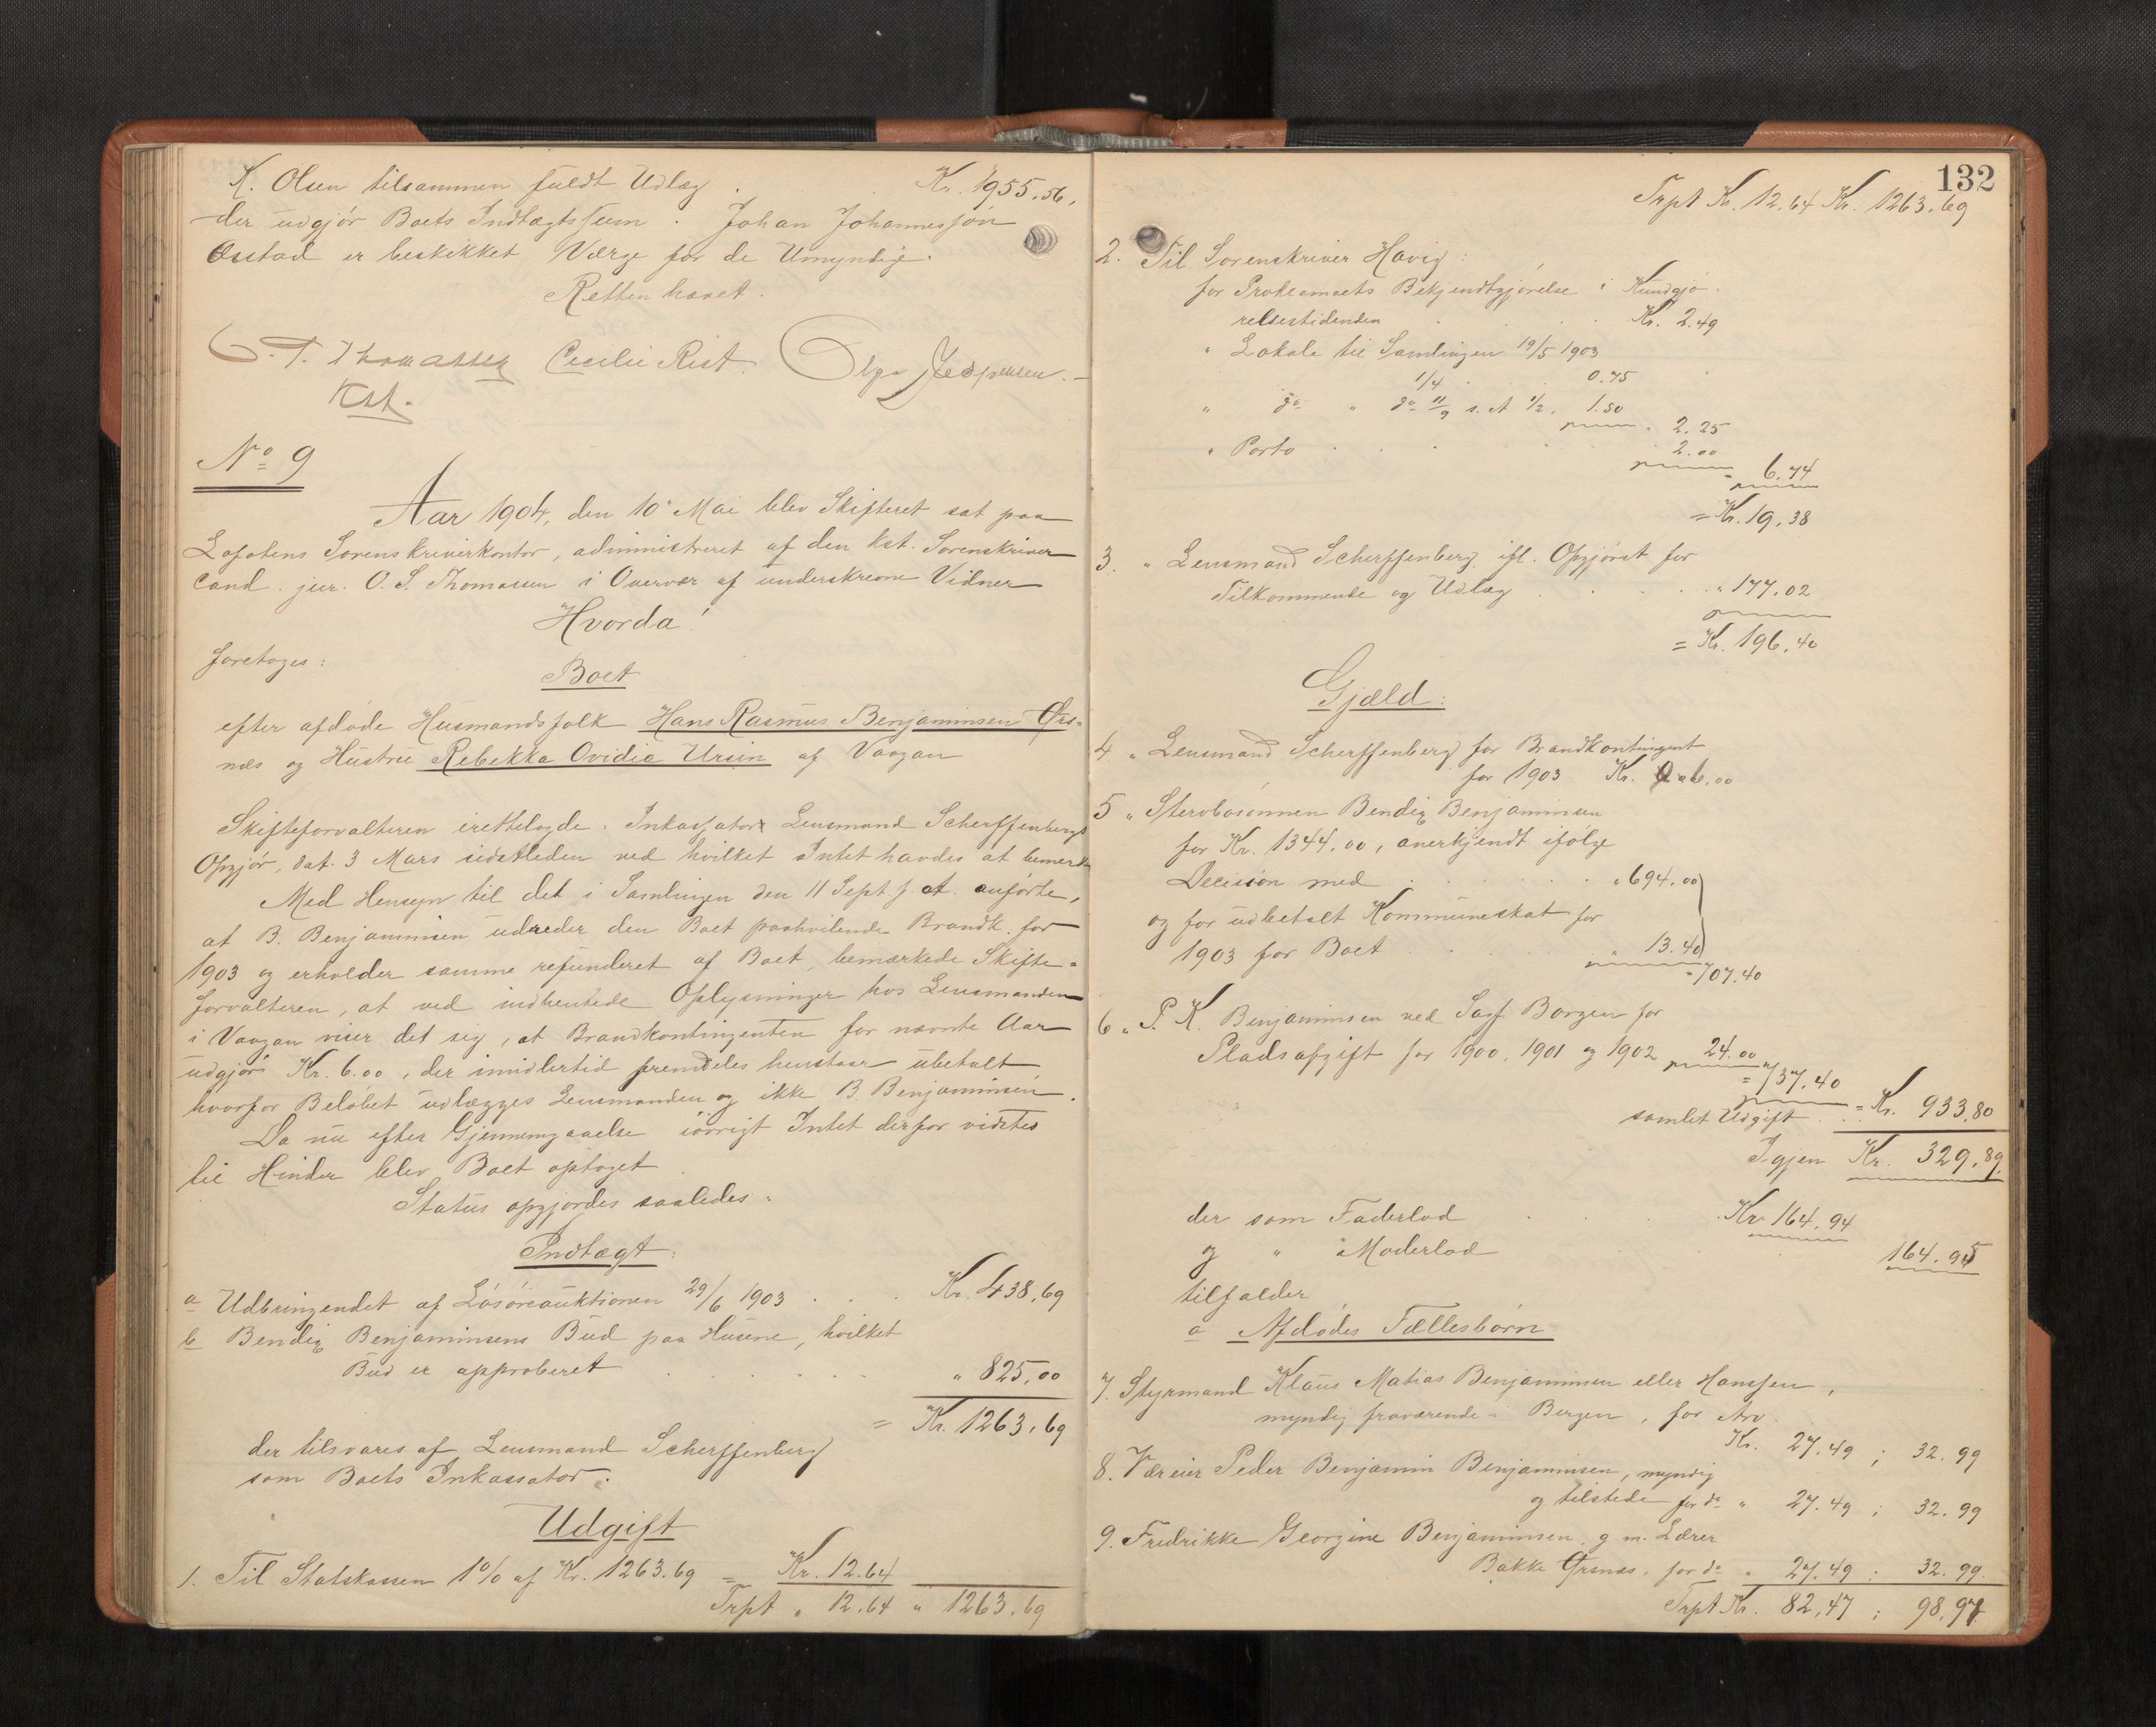 K. Olsen tilsammen fuldt Udlæg . Kr. 1955.56.
der udgjör Boets Indtægtssum . Johan Johannessön
Østad er beskikket Værge for de Umyndige.
Retten hævet.
O. S. Thomassen Cecilie Rist. Olga Jespersen.
Kst.
No 9
Aar 1904, den 10' Mai blev Skifteret sat paa
Lofotens Sorenskriverkontor, administreret af den kst. Sorenskriver
cand. jur. O. S. Thomassen i Overvær af underskrevne Vidner
Hvorda!
foretoges:
Boet
efter afdøde Husmandsfolk Hans Rasmus Benjaminsen Ørs-
næs og Hustru Rebekka Ovidia Ursin af Vaagan
Skifteforvalteren irettelagde. Inkassator Lensmand Scherffenbergs
Opgjör, dat. 3 Mars sidstleden ved hvilket Intet havdes at bemerke
Med Hensyn til det i Samlingen den 11 Sept. f. A. anförte,
at B. Benjaminsen udreder den Boet paahvilende Brandk. for
1903 og erholder samme refunderet af Boet, bemærkede Skifte-
forvalteren, at ved indhentede Oplysninger hos Lensmanden
i Vaagan viser det sig, at Brandkontingenten for nævnte Aar
udgjör Kr. 6.00, der imidlertid fremdeles henstaar ubetalt
hvorfor Belöbet udlægges Lensmanden og ikke B. Benjaminsen.
Da nu efter Gjennemgaaelse iövrigt Intet derfor vidstes
til Hinder blev Boet optaget
Status opgjordes saaledes:
Indtægt:
a Udbringendet af Lösöreauktionen 29/6 1903 . . . Kr. 438.69
b Bendix Benjaminsens Bud paa Husene, hvilket
Bud er approberet . . . . . . " 825.00
= Kr. 1263.69
der tilsvares af Lensmand Scherffenberg
som Boets Inkassator.
Udgift
1. Til Statskassen 1% af Kr. 1263.69 = Kr. 12.64
Trpt " 12.64 " 1263.69
132
Trpt Kr. 12.64 Kr. 1263.69
2. Til Sorenskriver Havig:
for Proklamaets Bekjendtgjörelse i Kundgjö-
relsestidenden . . . Kr. 2.49
" Lokale til Samlingen 19/5 1903
1/4 . . 0.75
" do " do 11/9 s. A 1/2. 1.50
" 2.25
" Porto . . . . 2.00
" 6.74
= Kr. 19.38
3. " Lensmand Scherffenberg ifl. Opgjöret for
Tilkommende og Udlæg . . . . " 177.02
= Kr. 196.40
Gjæld:
4 " Lensmand Scherffenberg for Brandkontingent
for 1903 Kr. 6.00
5 " Stervbosönnen Bendix Benjaminsen
for Kr. 1344.00, anerkjendt ifölge
Decision med . . . . . " 694.00
og for udbetalt Kommuneskat for
1903 for Boet . . . . " 13.40
" 707.40
6 " P. K. Benjaminsen ved Sagf. Borgen for
Pladsafgift for 1900, 1901 og 1902 24.00
= " 737.40
samlet Udgift . . = Kr. 933.80
Igjen Kr. 329.89
der som Faderlod . . . Kr. 164.94
og " Moderlod . 164.95
tilfalder
a Afdødes Fællesbörn
7. Styrmand Klaus Matias Benjaminsen eller Hanssen,
myndig fraværende i Bergen, for Arv.
Kr. 27.49 ; 32.99
8. Væreier Peder Benjamin Benjaminsen, myndig
og tilstede for do " 27.49 ; 32.99
9. Fredrikke Georgine Benjaminsen g. m. Lærer
Bakke Örsnæs, for do " 27.49 ; 32.99
Trpt Kr. 82.47 ; 98.97